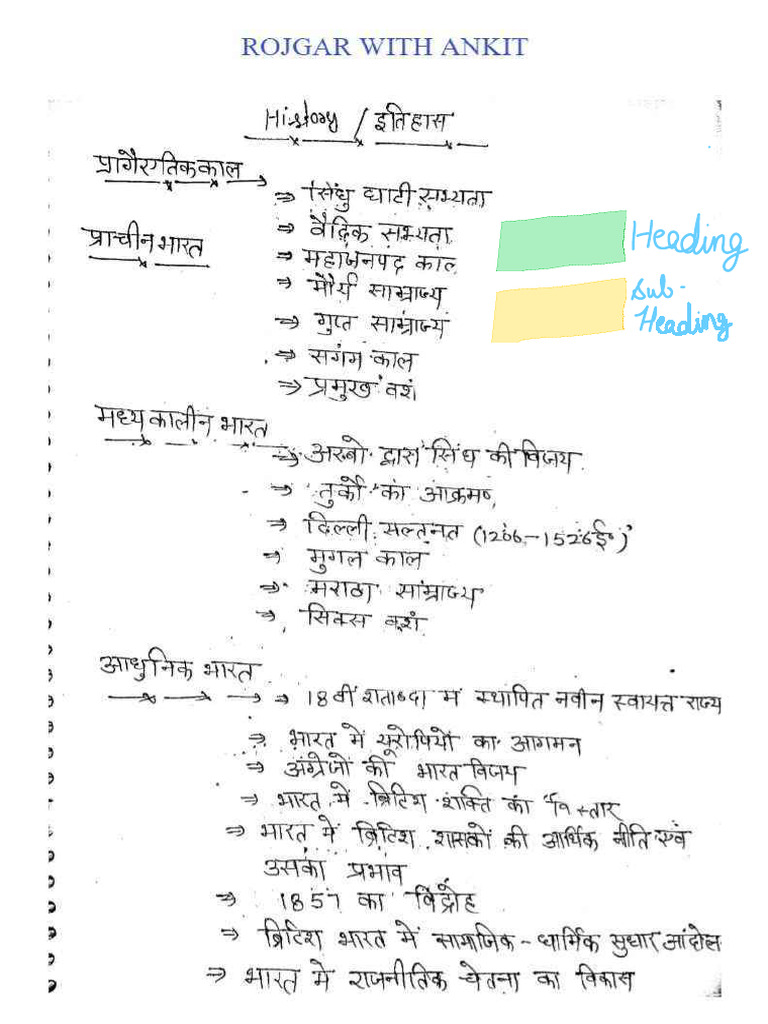 ROJGAR WITH ANKIT
History / इतिहास
प्रागैएतिककाल
⇒ सिंधु घाटी सभ्यता
प्राचीन भारत
⇒ वैदिक सभ्यता
⇒ महाजनपद काल
⇒ मौर्य साम्राज्य
⇒ गुप्त साम्राज्य
⇒ सगंम काल
⇒ प्रमुख वशं
Heading
Sub-
Heading
मध्य कालीन भारत
⇒ अरबो द्वारा सिंध की विजय
⇒ तुर्कों का आक्रमण
⇒ दिल्ली सल्तनत (1206-1526ई°)
⇒ मुगल काल
⇒ मराठा साम्राज्य
⇒ सिक्स वशं
आधुनिक भारत
⇒ 18वीं शताब्दी में स्थापित नवीन स्वायत्त राज्य
⇒ भारत में यूरोपियों का आगमन
⇒ अंग्रेजों की भारत विजय
⇒ भारत में ब्रिटिश शक्ति का विस्तार
⇒ भारत में ब्रिटिश शासकों की आर्थिक नीति एवं
उसका प्रभाव
⇒ 1857 का विद्रोह
⇒ ब्रिटिश भारत में सामाजिक-धार्मिक सुधार आंदोल
⇒ भारत में राजनीतिक चेतना का विकास